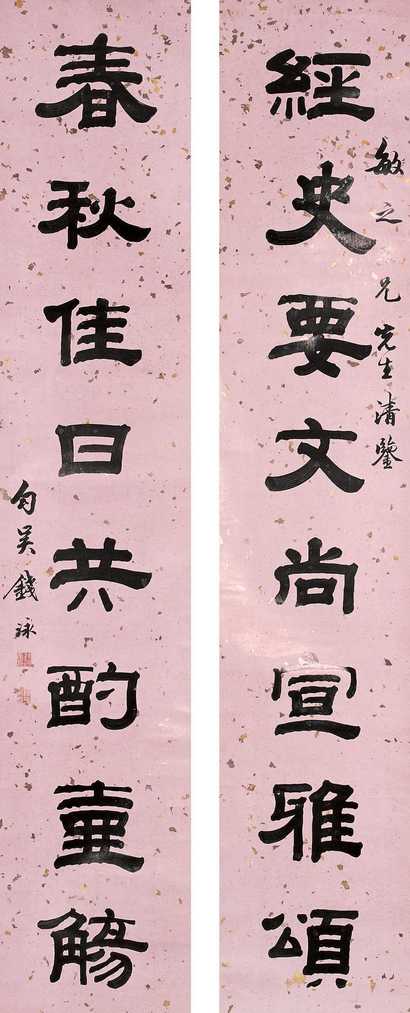 經史要文尚宣雅頌
敏之兄先生清鑒
春秋佳日共酌壷觴
句吳錢泳